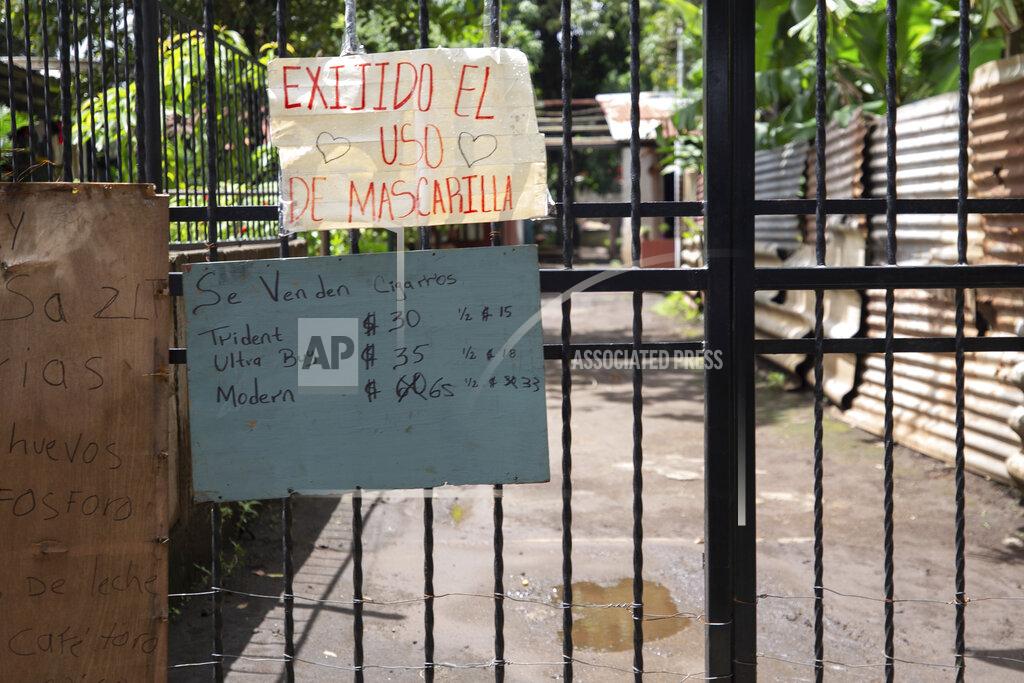 EXIJIDO EL
USO
DE MASCARILLA
Se Venden Cigarros
Trident ₡ 30 ½ ₡ 15
Ultra ₡ 35 ½ ₡ 18
Modern ₡ 65 ½ ₡ 33
AP ASSOCIATED PRESS
y
Sa
huevos
FOSFORO
De leche
Café